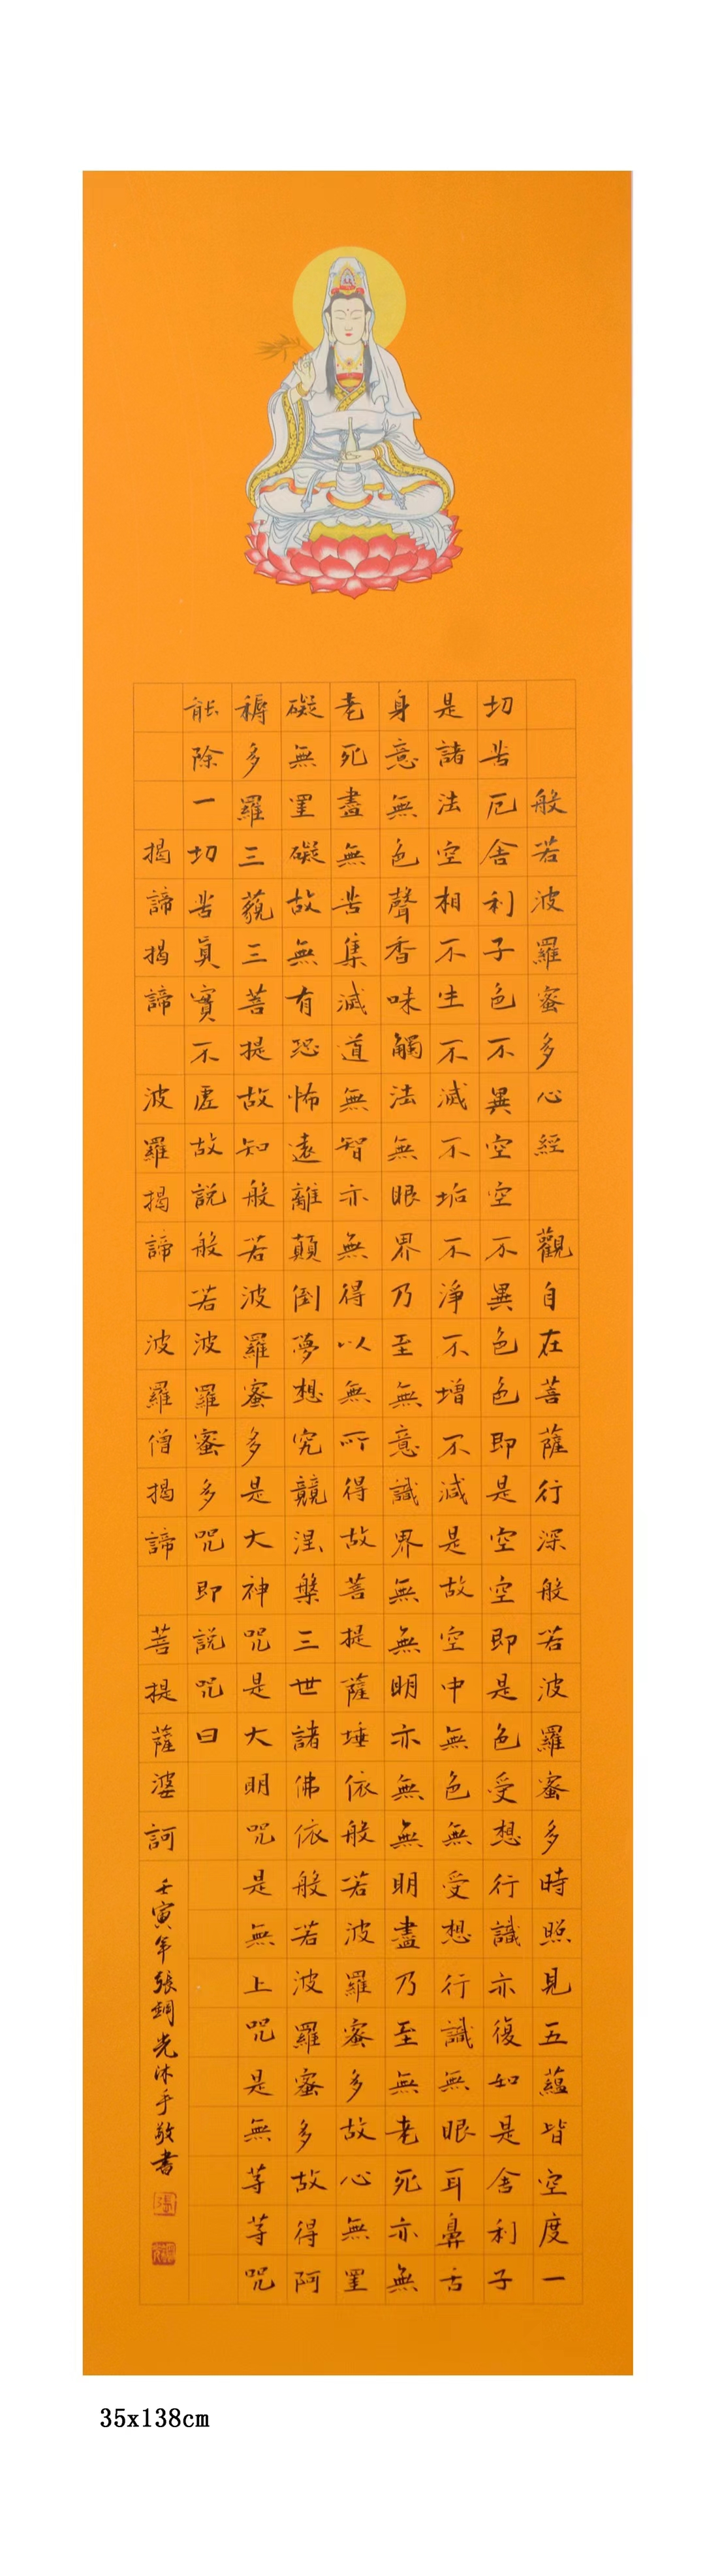 般若波羅蜜多心經 觀自在菩薩行深般若波羅蜜多時照見五蘊皆空度一
切苦厄舍利子色不異空空不異色色即是空空即是色受想行識亦復如是舍利子
是諸法空相不生不滅不垢不淨不增不減是故空中無色無受想行識無眼耳鼻舌
身意無色聲香味觸法無眼界乃至無意識界無無明亦無無明盡乃至無老死亦無
老死盡無苦集滅道無智亦無得以無所得故菩提薩埵依般若波羅蜜多故心無罣
礙無罣礙故無有恐怖遠離顛倒夢想究競涅槃三世諸佛依般若波羅蜜多故得阿
耨多羅三藐三菩提故知般若波羅蜜多是大神咒是大明咒是無上咒是無等等咒
能除一切苦眞實不虛故說般若波羅蜜多咒即說咒曰
揭諦揭諦 波羅揭諦 波羅僧揭諦 菩提薩婆訶
壬寅年張光沐手敬書
35x138cm